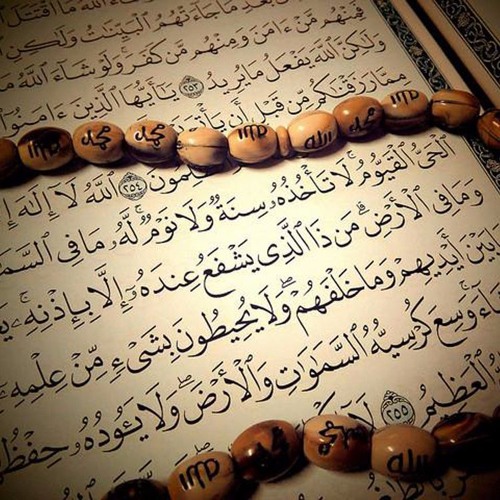 بَعْدِ مَا جَآءَتْهُمُ ٱلْبَيِّنَٰتُ وَلَٰكِنِ
فَمِنْهُم مَّنْ ءَامَنَ وَمِنْهُم مَّن كَفَرَ وَلَوْ شَآءَ ٱللَّهُ مَا ٱقْتَتَلُ
وَلَٰكِنَّ ٱللَّهَ يَفْعَلُ مَا يُرِيدُ ٢٥٣ يَٰٓأَيُّهَا ٱلَّذِينَ ءَامَنُ
مِمَّا رَزَقْنَٰكُم مِّن قَبْلِ أَن يَأْتِىَ
محمد محمد الله محمد
لمون ٢٥٤ ٱللَّهُ لَآ إِلَٰهَ إ
ٱلْحَىُّ ٱلْقَيُّومُ لَا تَأْخُذُهُۥ سِنَةٌ وَلَا نَوْمٌ لَّهُۥ مَا فِى ٱلسَّمَ
وَمَا فِى ٱلْأَرْضِ مَن ذَا ٱلَّذِى يَشْفَعُ عِندَهُۥٓ إِلَّا بِإِذْنِهِۦ يَ
بَيْنَ أَيْدِيهِمْ وَمَا خَلْفَهُمْ وَلَا يُحِيطُونَ بِشَىْءٍ مِّنْ عِلْمِهِۦٓ
آءَ وَسِعَ كُرْسِيُّهُ ٱلسَّمَٰوَٰتِ وَٱلْأَرْضَ وَلَا يَـُٔودُهُۥ حِفْظُ
ٱلْعَظِيمُ ٢٥٥ لَآ
محمد محمد الله